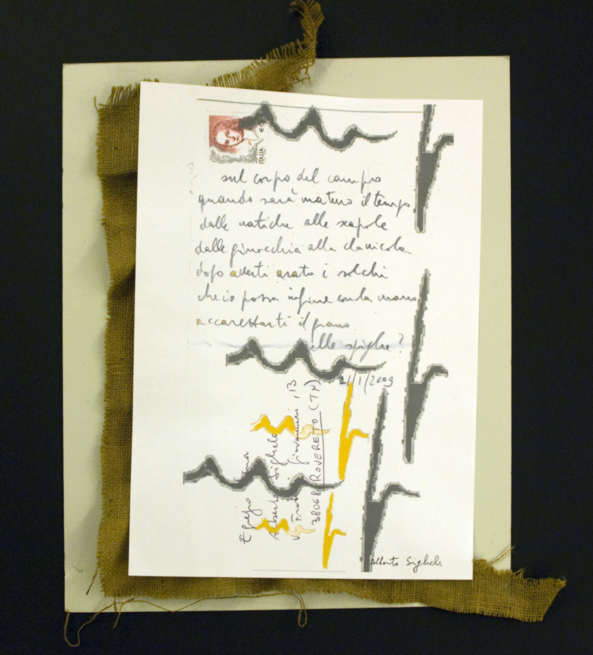 sul corpo del campo
quando sarà maturo il tempo
dalle natiche alle scapole
dalle ginocchia alla clavicola
dopo averti arato i solchi
che io possa infine con la mano
accarezzarti il grano
alle spighe?
21/1/2003
Egregio
Alberto Sighele
Giovanni, 13
38068 ROVERETO (TN)
Alberto Sighele